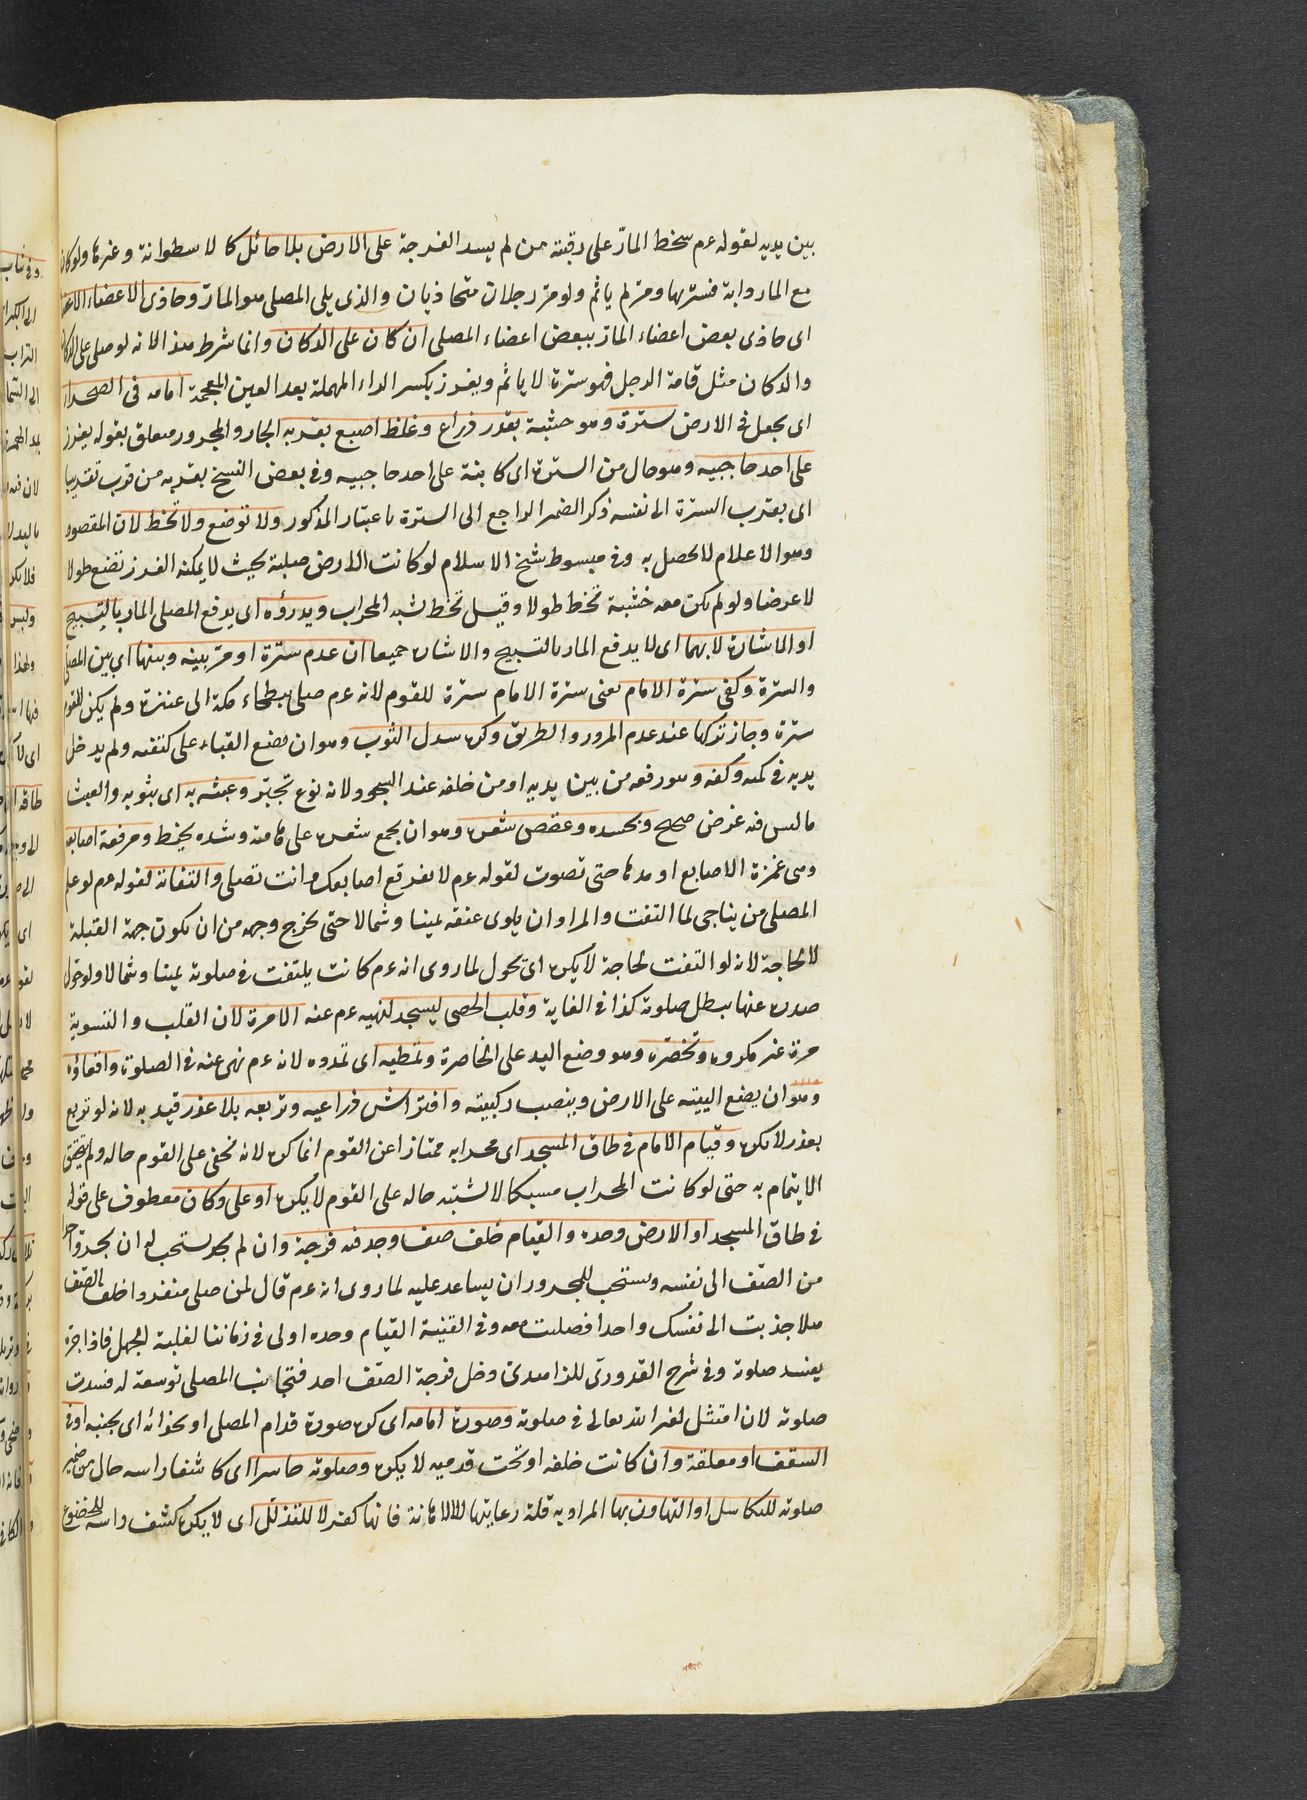 بين يديه لقوله عم سخط المارّ على رقبته من لم يسد الفرجة على الارض بلا حائل كالاسطوانة وغيرها ولو كان
مع المار دابة فسترها ومرّ لم ياثم ولو مرّ رجلان متحاذيان والذى يلى المصلى هو المارّ وحاذى الاعضاء الاعضاء
اى حاذى بعض اعضاء المار ببعض اعضاء المصلى ان كان على الدكان وانما شرط هذا لانه لو صلى على الدكان
والدكان مثل قامة الرجل فهو سترة لا ياثم ويغرز بكسر الراء المهملة بعد الغين المعجمة امامه فى الصحراء
اى يجعل فى الارض سترة وهو خشبة بقدر ذراع وغلظ اصبع بقربه الجار والمجرور متعلق بقوله يغرز
على احد حاجبيه وهو حال من السترة اى كائنة على احد حاجبيه وفى بعض النسخ بقربه من قرب تقريبا
اى يقرب السترة الى نفسه ذكر الضمير الراجع الى السترة باعتبار المذكور ولا توضع ولا تخط لان المقصود
وهو الاعلام لا يحصل به وفى مبسوط شيخ الاسلام لو كانت الارض صلبة بحيث لا يمكنه الغرز تضع طولا
لا عرضا ولو لم يكن معه خشبة تخط طولا وقيل تخط شبه المحراب ويدرؤه اى يدفع المصلى المار بالتسبيح
او الاشارة لا بهما اى لا يدفع المار بالتسبيح والاشارة جميعا ان عدم سترة او مرّ بينه وبينها اى بين المصلى
والسترة وكفى سترة الامام يعنى سترة الامام سترة للقوم لانه عم صلى ببطحاء مكة الى عنزة ولم يكن للقوم
سترة وجاز تركها عند عدم المرور والطريق وكره سدل الثوب وهو ان يضع القباء على كتفه ولم يدخل
يديه فى كمه وكفه وهو رفعه من بين يديه او من خلفه عند السجود لانه نوع تجبّر وعبثه به اى بثوبه والعبث
ما ليس فيه غرض صحيح وبجسده وعقص شعره وهو ان يجمع شعره على هامته وشده بخيط وفرقعة اصابعه
وهى غمزة الاصابع او مدها حتى تصوت لقوله عم لا تفرقع اصابعك وانت تصلى والتفاته لقوله عم لو علم
المصلى من يناجى لما التفت والمراد ان يلوى عنقه يمينا وشمالا حتى يخرج وجهه من ان يكون جهة القبلة
لا لحاجة لانه لو التفت لحاجة لا يكره اى يحول لما روى انه عم كانت يلتفت فى صلوته يمينا وشمالا ولو حول
صدره عنها يبطل صلوته كذا فى الغاية وقلب الحصى ليسجد لنهيه عم عنه الا مرة لان القلب والتسوية
مرة غير مكروه وتخصّره وهو وضع اليد على الخاصرة وتمطيه اى تمدده لانه عم نهى عنه فى الصلوة واقعاؤه
وهو ان يضع اليتيه على الارض وينصب ركبتيه وافتراش ذراعيه وتربعه بلا عذر قيد به لانه لو تربع
بعذر لا يكره وقيام الامام فى طاق المسجد اى محرابه ممتازا عن القوم انما كره لانه يخفى على القوم حاله ولم يتحقق
الايتمام به حتى لو كانت المحراب مشبكا لا يشتبه حاله على القوم لا يكره او على دكان معطوف على قوله
فى طاق المسجد او الارض وحده والقيام خلف صف وجد فيه فرجة وان لم يجد يستحب له ان يجر واحدا
من الصّف الى نفسه ويستحب للمجرور ان يساعد عليه لما روى انه عم قال لمن صلى منفردا خلف الصّف
هلا جذبت الى نفسك واحدا فصليت معه وفى القنية القيام وحده اولى فى زماننا لغلبة الجهل فاذا جره
يفسد صلوته وفى شرح القدورىّ للزاهدىّ دخل فرجة الصّف احد فتجانب المصلى توسعة له فسدت
صلوته لان امتثل لغير الله تعالى فى صلوته وصورة امامه اى كره صورة قدام المصلى او بحذائه اى بجنبه او فى
السقف او معلقة وان كانت خلفه او تحت قدميه لا يكره وصلوته حاسرا اى كاشفا راسه حال من ضمير
صلوته للتكاسل او التهاون بها المراد به قلة رعايتها لا الاهانة فانها كفر لا للتذلّل اى لا يكره كشف راسه للخضوع